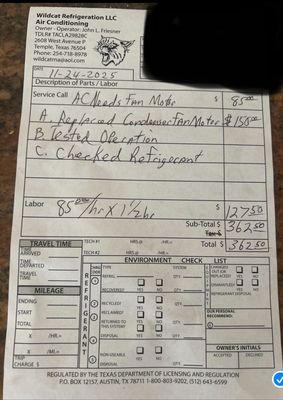 Wildcat Refrigeration LLC
Air Conditioning
Owner - Operator: John L. Friesner
TDLR# TACLA29828C
2608 West Avenue P
Temple, Texas 76504
Phone: 254-718-8978
wildcatma@aol.com
DATE 11-24-2025
Description of Parts / Labor
Service Call AC Needs Fan Motor $ 85.00
A. Replaced Condenser Fan Motor $150.00
B. Tested Operation
C. Checked Refrigerant
Labor 85.00/hr X 1 1/2 hr $ 127.50
Sub-Total $ 362.50
Tax $
Total $ 362.50
TRAVEL TIME
TIME ARRIVED
TIME DEPARTED
TRAVEL TIME
MILEAGE
ENDING
START
TOTAL
X /HR.=
X /MI.=
TRIP CHARGE $
TECH #1 HRS @ /HR.=
TECH #2 HRS @ /HR.=
ENVIRONMENT CHECK LIST
REFRIGERANT
TYPE REFRIG. SYSTEM QTY.
RECOVERED? YES NO QTY.
RECYCLED? YES NO QTY.
RECLAIMED? YES NO QTY.
RETURNED TO THIS SYSTEM? YES NO QTY.
DISPOSAL
NON-USEABLE YES NO QTY.
DISPOSAL
REPLACED? YES NO
DISMANTLED? YES NO
REFRIGERANT DISPOSAL
$
OUR PERSONAL RECOMMEND.
OWNER'S INITIALS
ACCEPTED DECLINED
REGULATED BY THE TEXAS DEPARTMENT OF LICENSING AND REGULATION
P.O. BOX 12157, AUSTIN, TX 78711 1-800-803-9202, (512) 643-6599